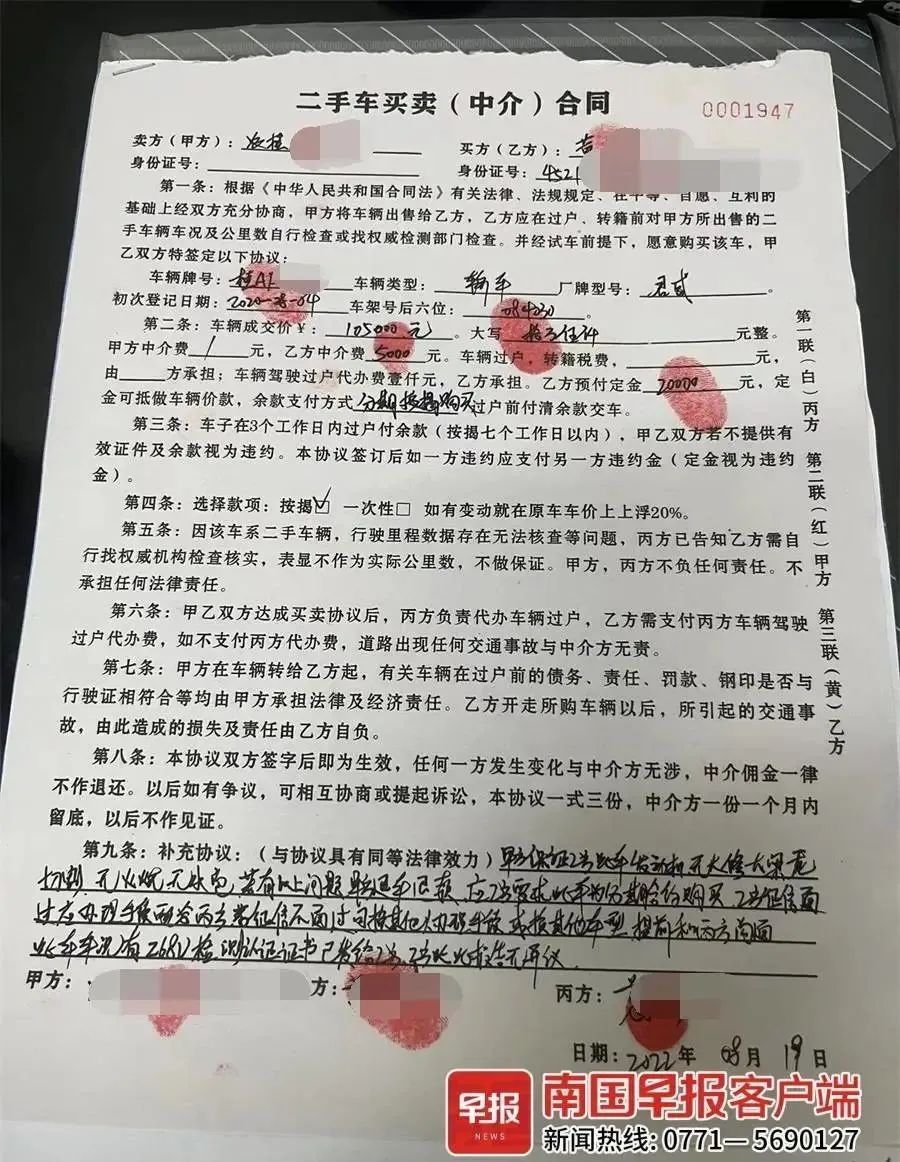 二手车买卖（中介）合同
0001947
卖方（甲方）：
买方（乙方）：
身份证号：
身份证号：4521
第一条：根据《中华人民共和国合同法》有关法律、法规规定、在平等、自愿、互利的
基础上经双方充分协商，甲方将车辆出售给乙方，乙方应在过户、转籍前对甲方所出售的二
手车辆车况及公里数自行检查或找权威检测部门检查。并经试车前提下，愿意购买该车，甲
乙双方特签定以下协议：
车辆牌号：桂A 车辆类型：轿车 厂牌型号：君威。
初次登记日期：2020-08-04 车架号后六位：084230
第二条：车辆成交价¥：105000元。大写 元整。
甲方中介费 / 元，乙方中介费 5000 元。车辆过户，转籍税费， 元，
由 方承担；车辆驾驶过户代办费壹仟元，乙方承担。乙方预付定金 20000 元，定
金可抵做车辆价款，余款支付方式 分期按揭购买 过户前付清余款交车。
第三条：车子在3个工作日内过户付余款（按揭七个工作日以内），甲乙双方若不提供有
效证件及余款视为违约。本协议签订后如一方违约应支付另一方违约金（定金视为违约
金）。
第四条：选择款项：按揭☑ 一次性□ 如有变动就在原车车价上上浮20%。
第五条：因该车系二手车辆，行驶里程数据存在无法核查等问题，丙方已告知乙方需自
行找权威机构检查核实，表显不作为实际公里数，不做保证。甲方，丙方不负任何责任。不
承担任何法律责任。
第六条：甲乙双方达成买卖协议后，丙方负责代办车辆过户，乙方需支付丙方车辆驾驶
过户代办费，如不支付丙方代办费，道路出现任何交通事故与中介方无责。
第七条：甲方在车辆转给乙方起，有关车辆在过户前的债务、责任、罚款、钢印是否与
行驶证相符合等均由甲方承担法律及经济责任。乙方开走所购车辆以后，所引起的交通事
故，由此造成的损失及责任由乙方自负。
第八条：本协议双方签字后即为生效，任何一方发生变化与中介方无涉，中介佣金一律
不作退还。以后如有争议，可相互协商或提起诉讼，本协议一式三份，中介方一份一个月内
留底，以后不作见证。
第九条：补充协议：（与协议具有同等法律效力）甲方保证 此车发动机无大修大梁无
切割 无火烧无水泡 若有以上问题 退车退款 应乙方要求此车为分期 购买 乙方征信
过后办理手续 若征信不通过 其他 办理手续 或换其他车型 提前和丙方沟通
此车车况有268V检测认证证书已发给乙方，乙方 无异议
甲方：
方：
丙方：
日期：2022年 08月 19日
第一联（白）丙方
第二联（红）甲方
第三联（黄）乙方
早报
NEWS
南国早报客户端
新闻热线：0771—5690127